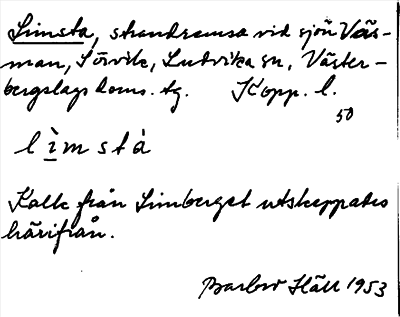 Limsta, strandremsa vid sjön Väs-
man, Sörvik, Ludvika sn, Väster-
bergslags doms. tg. Kopp. l.
50
lìmstà
Kalk från Limberget utskeppates
härifrån.
1953